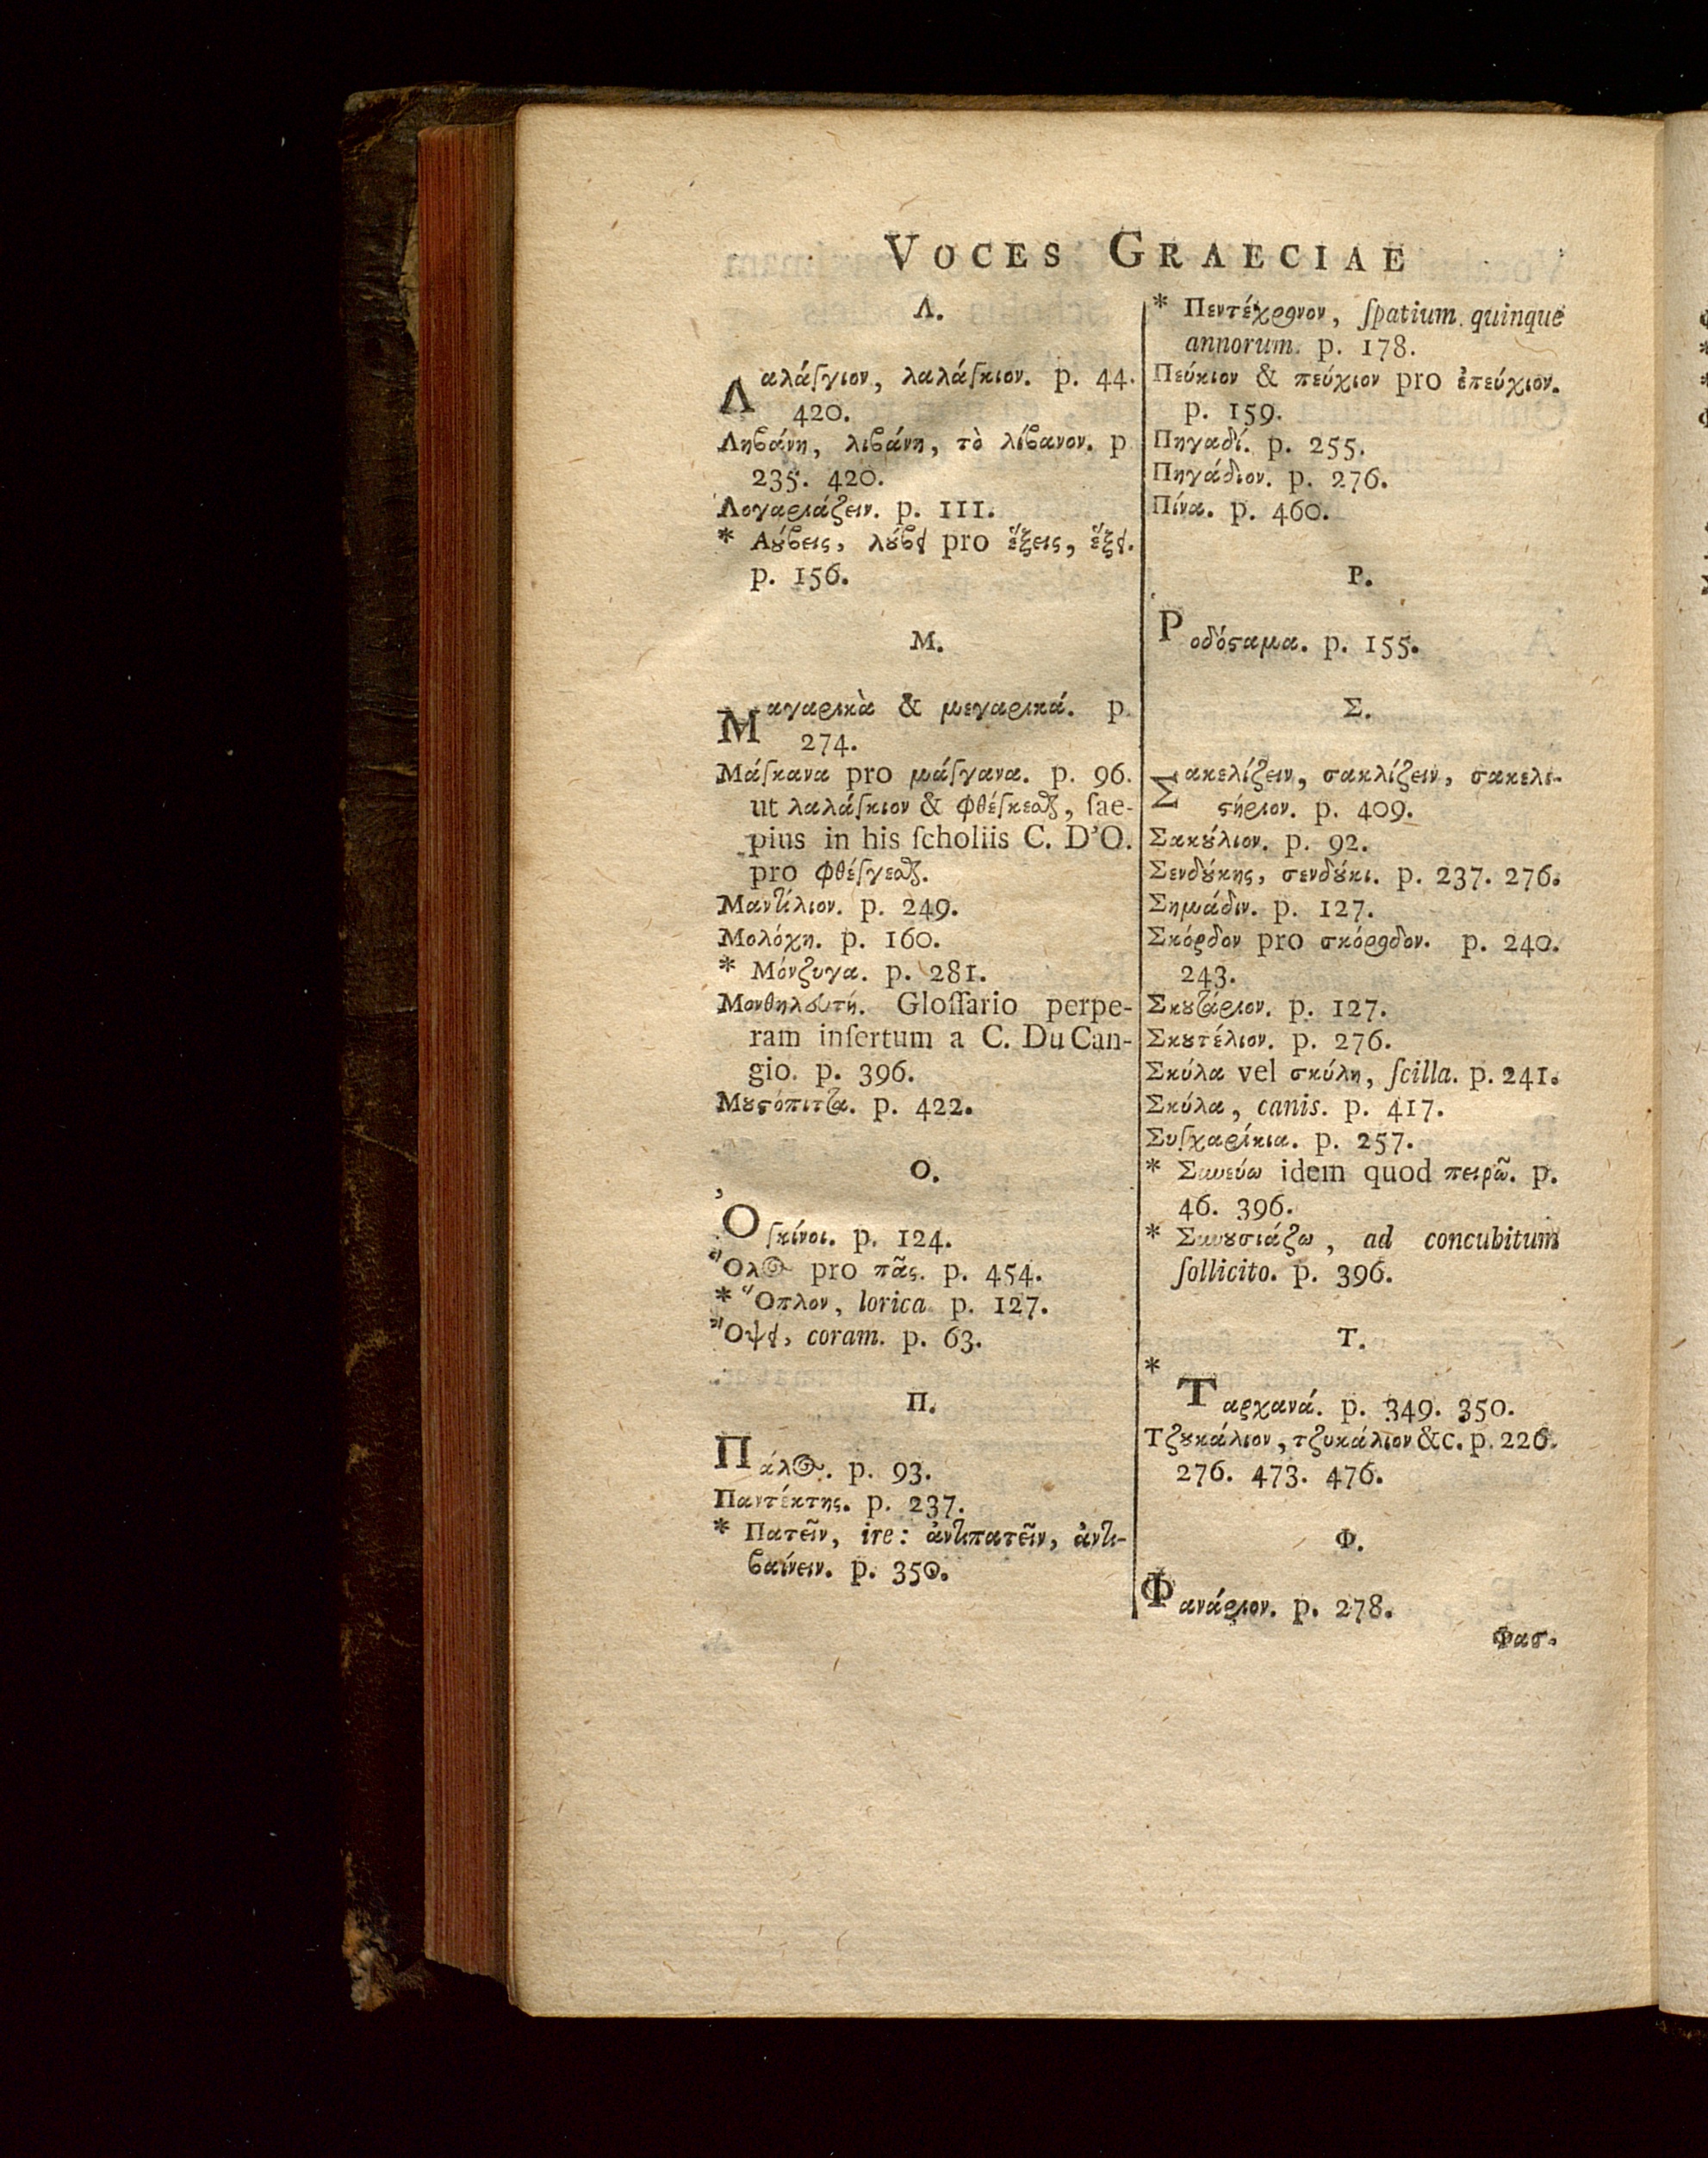 VOCES GRAECIAE
Λ.
Λαλάσγιον, λαλάσκιον. p. 44.
420.
Ληβάνη, λιβάνη, τὸ λίβανον. p
235. 420.
Λογαριάζειν. p. 111.
* Λούβεις, λούβει pro ἕξεις, ἕξει.
p. 156.
M.
Μαγαρικὰ & μεγαρικά. p.
274.
Μάσκανα pro μάσγανα. p. 96.
ut λαλάσκιον & φθέσκεσθαι, ſae-
pius in his ſcholiis C. D'O.
pro φθέσγεσθαι.
Μαντίλιον. p. 249.
Μολόχη. p. 160.
* Μόνζυγα. p. 281.
Μονθηλευτή. Gloſſario perpe-
ram inſertum a C. Du Can-
gio. p. 396.
Μουστόπιττα. p. 422.
O.
Ὀσκίνοι. p. 124.
Ὅλος pro πᾶς. p. 454.
* Ὅπλον, lorica p. 127.
Ὄψει, coram. p. 63.
Π.
Πάλος. p. 93.
Παντέκτης. p. 237.
* Πατεῖν, ire: ἀντιπατεῖν, ἀντι-
βαίνειν. p. 350.
* Πεντέχρονον, ſpatium quinque
annorum. p. 178.
Πεύκιον & πεύχιον pro ἐπεύχιον.
p. 159.
Πηγαδί. p. 255.
Πηγάδιον. p. 276.
Πίνα. p. 460.
P.
Ῥοδόσταμα. p. 155.
Σ.
Σακελίζειν, σακλίζειν, σακελι-
στήριον. p. 409.
Σακούλιον. p. 92.
Σενδούκης, σενδούκι. p. 237. 276.
Σημάδιν. p. 127.
Σκόρδον pro σκόροδον. p. 240.
243.
Σκουτάριον. p. 127.
Σκουτέλιον. p. 276.
Σκύλα vel σκύλη, ſcilla. p. 241.
Σκύλα, canis. p. 417.
Συσχαρίκια. p. 257.
* idem quod πειρῶ. p.
46. 396.
* ad concubitum
ſollicito. p. 396.
T.
*
Ταρχανά. p. 349. 350.
Τζουκάλιον, τζυκάλιον &c. p. 226.
276. 473. 476.
Φ.
Φανάριον. p. 278.
Φασ.